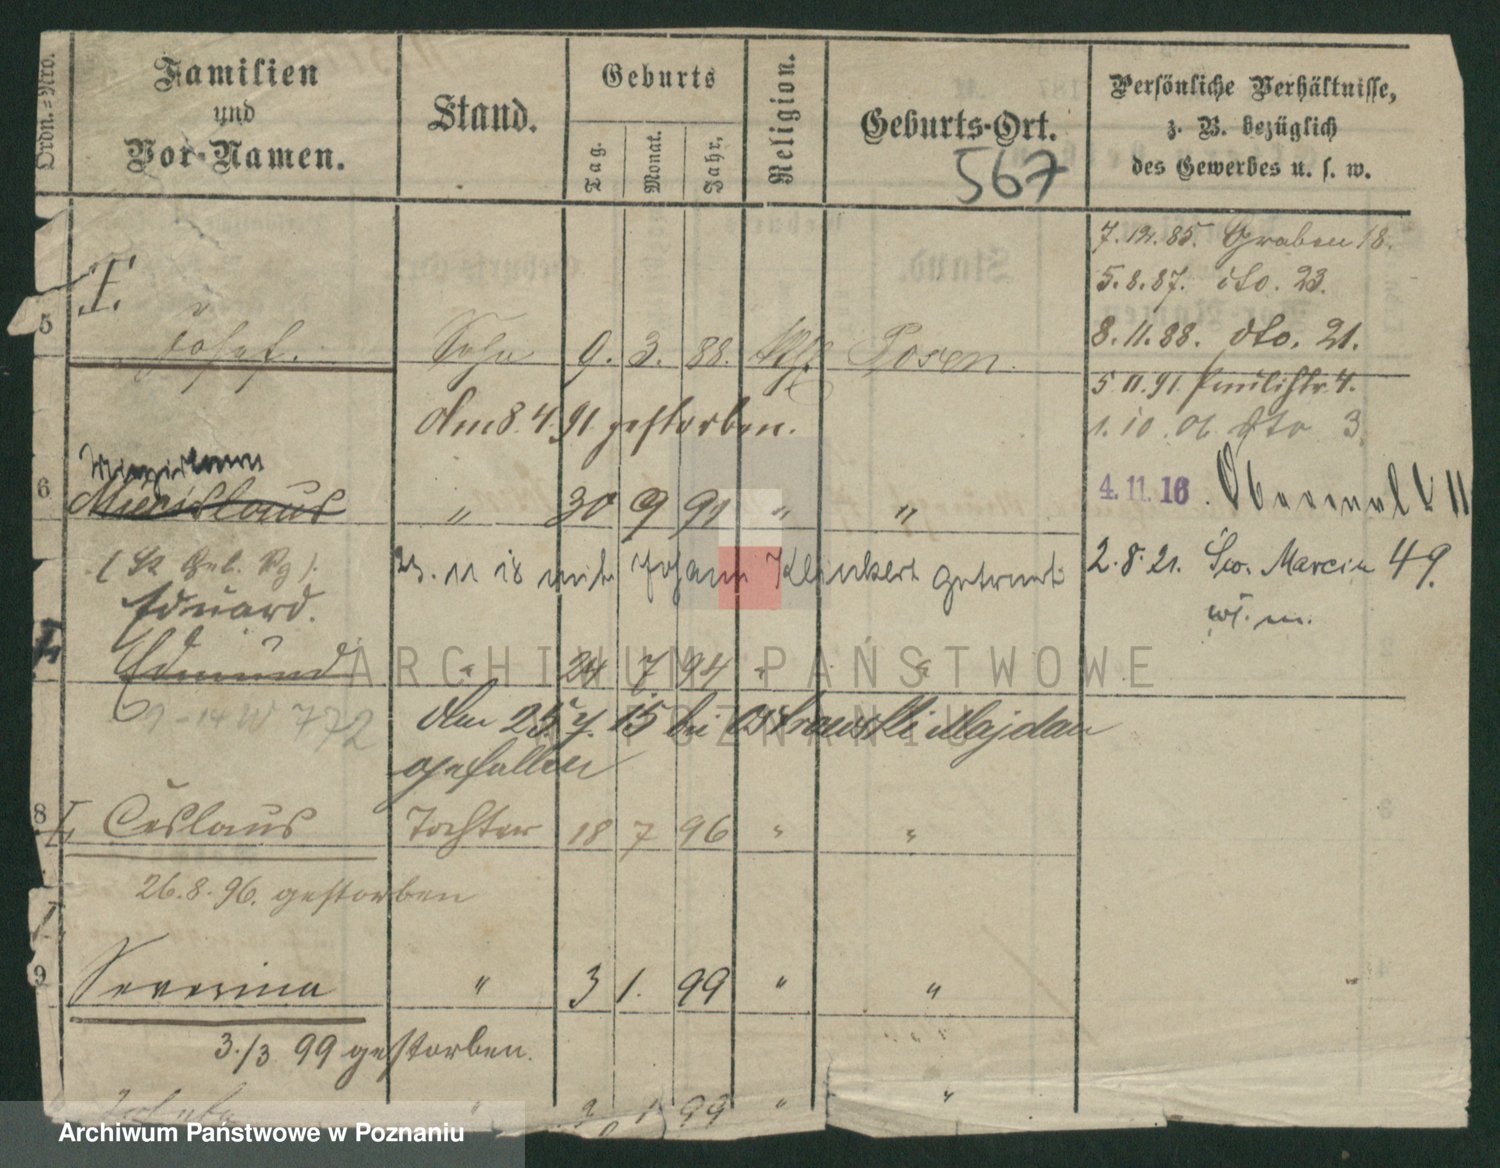 Ordn.-Nro.
Familien
und
Vor-Namen.
Stand.
Geburts
Tag.
Monat.
Jahr.
Religion.
Geburts-Ort.
567
Persönliche Verhältnisse,
z. B. bezüglich
des Gewerbes u. s. w.
7.12.85. Graben 18.
5.8.87. dto. 23.
8.11.88. dto. 21.
5 11.91. Paulistr. 4.
1.10.06 dto 3.
4.11.16
2.8.21. Św. Marcin 49.
wł. m.
5
Josef. Sohn 9. 3. 88. kth. Posen
Am 8.4.91 gestorben.
6
Miecislaus " 30 9 91 " "
23. 11 18 mit Johann Klinkert getraut
Eduard.
Edmund " 24 7 94 " "
772
Am 25. 7. 15 bei Ostrowski Majdan
gefallen
8
Ceslaus Tochter 18 7 96 " "
26.8.96. gestorben
9
Severina " 3 1. 99 " "
3./3 99 gestorben.
" 1. 99 " "
ARCHIWUM PAŃSTWOWE
W POZNANIU
Archiwum Państwowe w Poznaniu